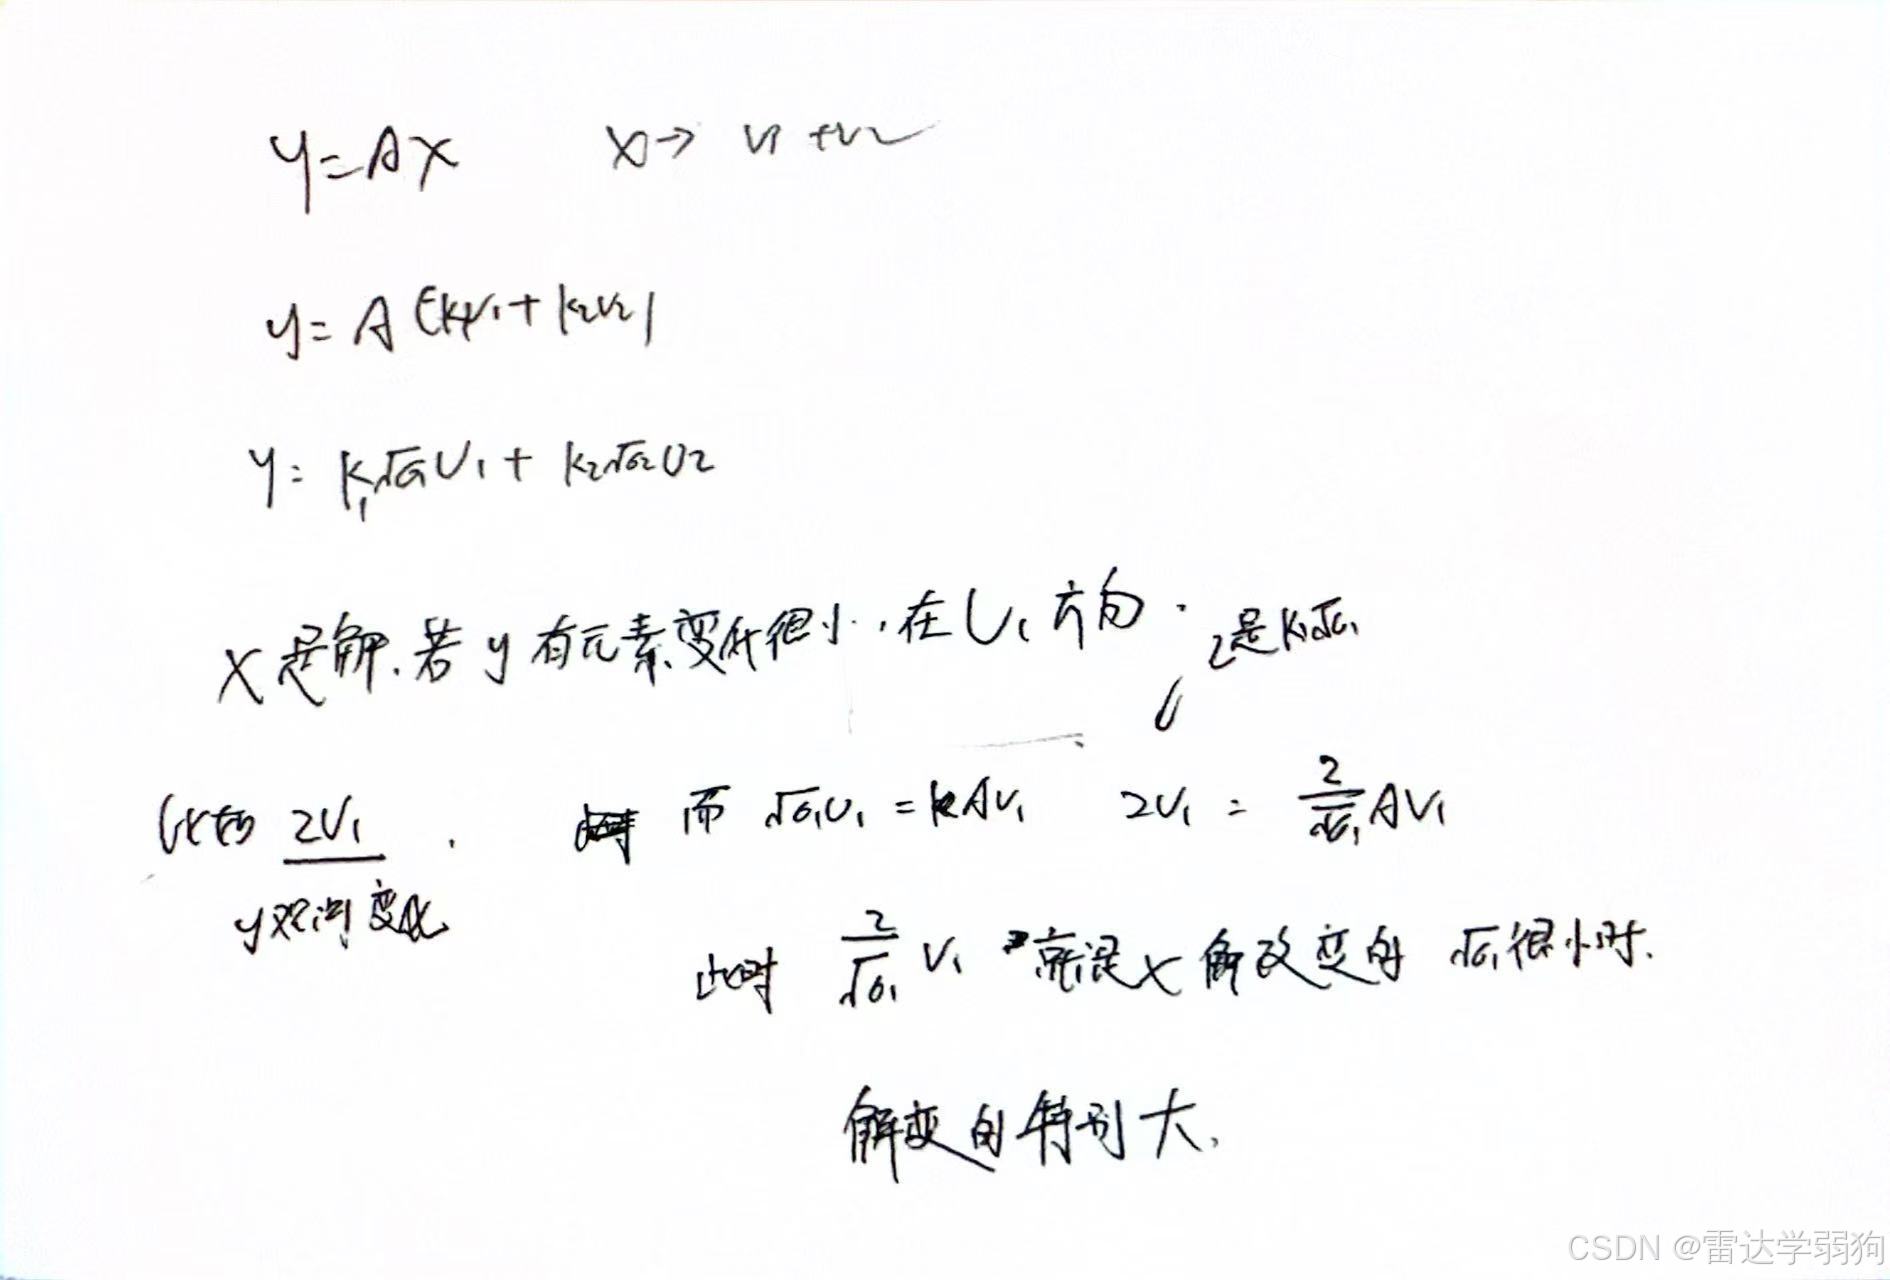 y=AX X→ v1+v2
y=A(k1v1+k2v2)
y= k1√σ1U1+ k2√σ2U2
X是解.若y有元素变化很小,在U1方向.
2是k1√σ1
2U1 而 √σ1U1 = AV1 2U1 = 2/√σ1 AV1
y观测变化
此时 2/√σ1 V1 就是X解改变的 √σ1很小时.
解变的特别大.
CSDN @雷达学弱狗